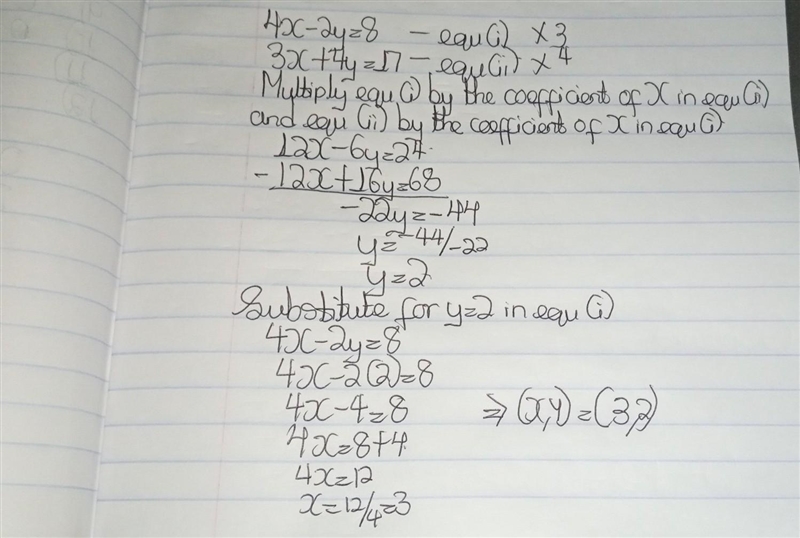 4x-2y=8 - equ(i) ×3
3x+4y=17 - equ(ii) ×4
Multiply equ(i) by the coefficient of x in equ(ii)
and equ(ii) by the coefficient of x in equ(i)
12x-6y=24
-12x+16y=68
-22y=-44
y=-44/-22
y=2
Substitute for y=2 in equ(i)
4x-2y=8
4x-2(2)=8
4x-4=8 ⇒ (x,y)=(3,2)
4x=8+4
4x=12
x=12/4=3